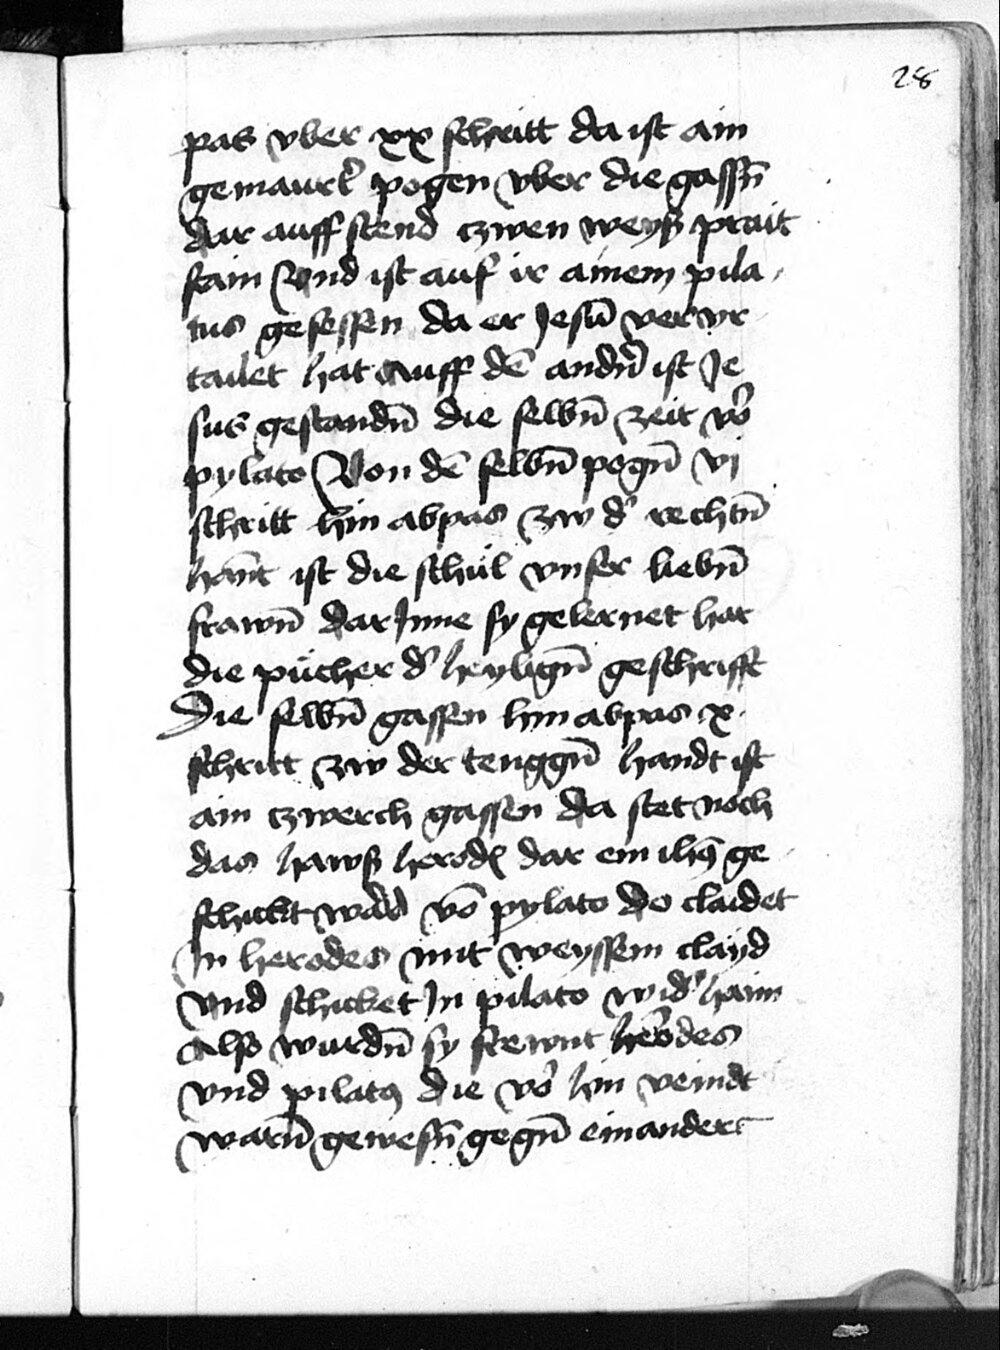 28
pas vber xx schritt da ist ain
gemaurt͛ pogen vber die gassn̄
dar auff stend czwen weyß prait
stain Vnd ist auf ir ainem pila
tus gesessen da er Jesū verur
tailet hat auff dē andn̄ ist Je
sus gestandn̄ die selbn̄ zeit vō
pylato Von dē selbn̄ pogn̄ vj
schritt hin abpas zw d͛ rechtn̄
hānt ist die schůl vnser liebn̄
frawn̄ dar Jnne sy gelernet hat
die půcher d͛ heylign̄ geschrifft
Die selbn̄ gassen hin abpas x
schritt zw der tenggn̄ handt ist
ain czwerch gassen da stet noch
das hawß herodꝭ dar ein ihūs ge
schickt ward vō pylato do claidet
Jn herodes mit weyssem clayd
vnd schicket Jn pilato wid͛ haim
also wurdn̄ sy frewnt herodes
vnd pilatꝰ die vo͛ hin veindt
warn̄ gewesn̄ gegn̄ einander